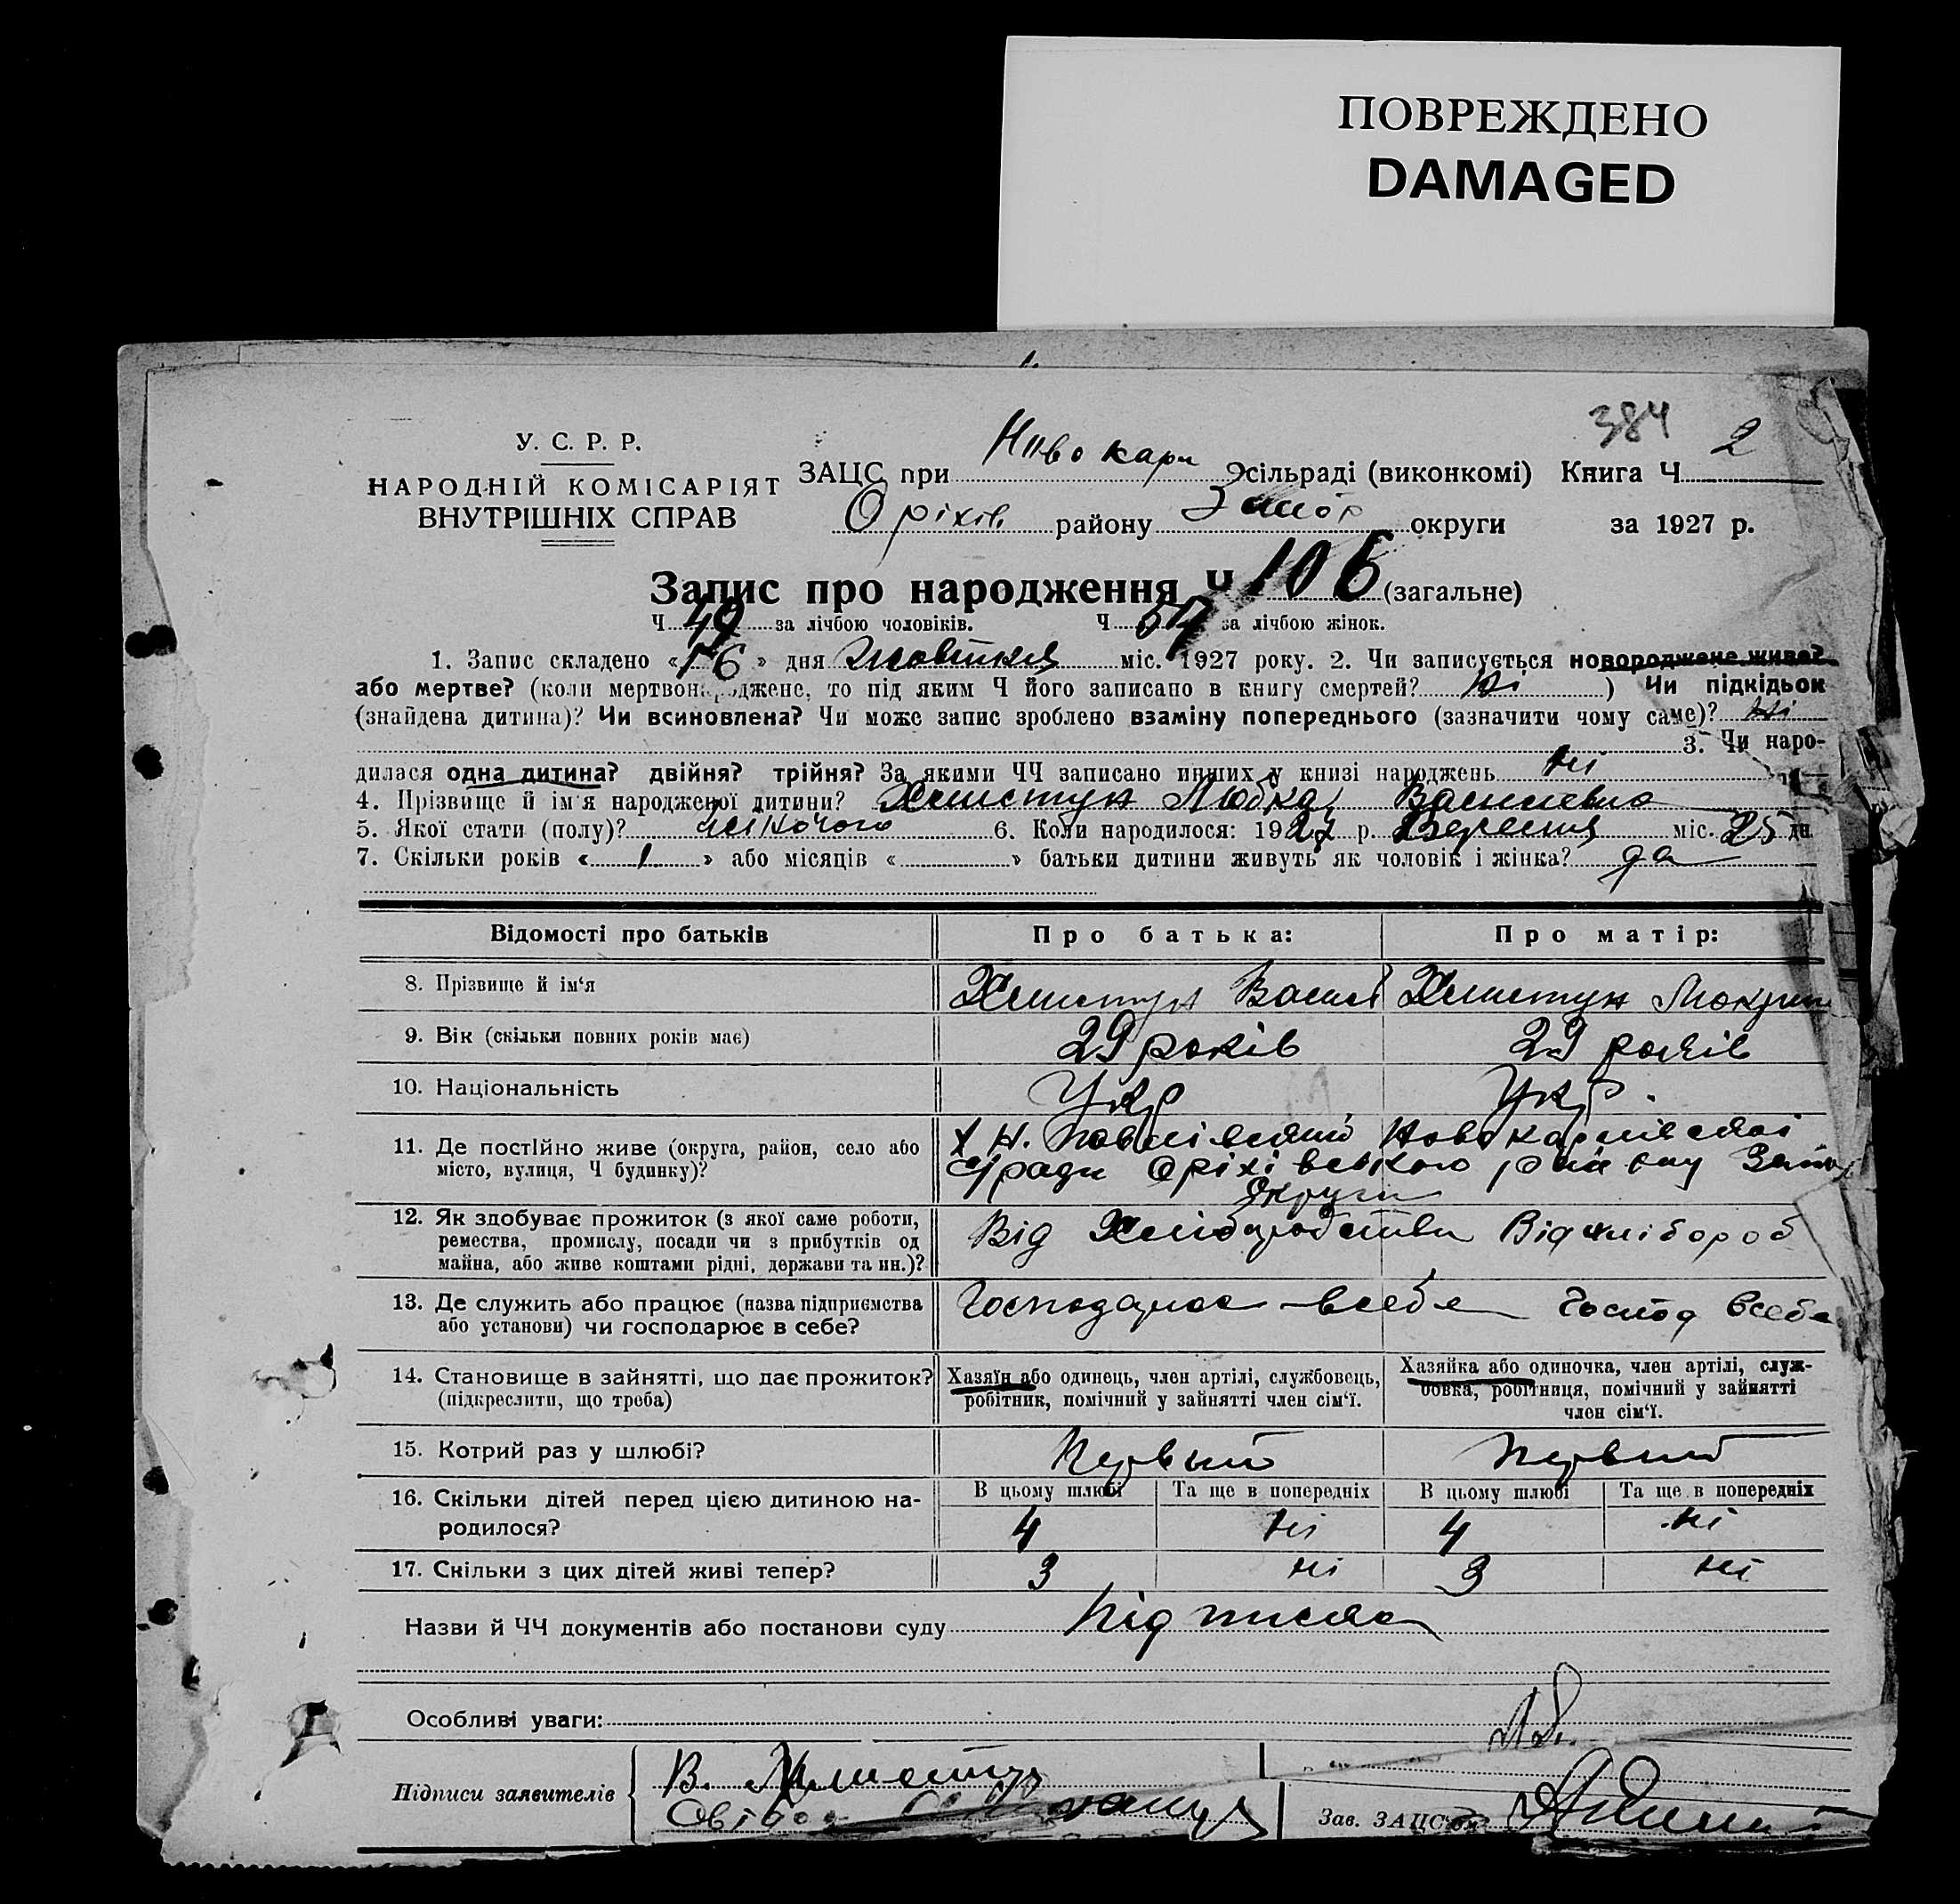 ПОВРЕЖДЕНО
DAMAGED
384
У. С. Р. Р.
НАРОДНІЙ КОМІСАРІЯТ
ВНУТРІШНІХ СПРАВ
ЗАЦС при Ново карп сільраді (виконкомі) Книга Ч. 2
Оріхів району Запор округи за 1927 р.
Запис про народження Ч 106 (загальне)
Ч 49 за лічбою чоловіків. Ч 57 за лічбою жінок.
1. Запис складено « 16 » дня Жовтня міс. 1927 року. 2. Чи записується новороджене живе?
або мертве? (коли мертвонароджене, то під яким Ч його записано в книгу смертей? Ні ) Чи підкідьок
(знайдена дитина)? Чи всиновлена? Чи може запис зроблено взаміну попереднього (зазначити чому саме)? Ні
3. Чи наро-
дилася одна дитина? двійня? трійня? За якими ЧЧ записано инших у книзі народжень Ні
4. Прізвище й ім'я народженої дитини? Хлистун Любка Василевна
5. Якої стати (полу)? жіночого 6. Коли народилося: 1927 р. Вересня міс. 25 дн
7. Скільки років « 1 » або місяців « » батьки дитини живуть як чоловік і жінка? да
Відомості про батьків Про батька: Про матір:
8. Прізвище й ім'я Хлистун Васил Хлистун Мокрин
9. Вік (скільки повних років має) 29 років 29 років
10. Національність Укр Укр.
11. Де постійно живе (округа, район, село або
місто, вулиця, Ч будинку)?
Х Н. Павлівский Новокарпівської
с/ради Оріхівського району Запор
Округи
12. Як здобуває прожиток (з якої саме роботи,
ремества, промислу, посади чи з прибутків од
майна, або живе коштами рідні, держави та ин.)?
Від Хліборобства Від хлібороб
13. Де служить або працює (назва підприємства
або установи) чи господарює в себе?
Господарює всебе Господ всебе
14. Становище в зайнятті, що дає прожиток?
(підкреслити, що треба)
Хазяїн або одинець, член артілі, службовець,
робітник, помічний у зайнятті член сім'ї.
Хазяйка або одиночка, член артілі, служ-
бовка, робітниця, помічний у зайнятті
член сім'ї.
15. Котрий раз у шлюбі? Первый Первий
16. Скільки дітей перед цією дитиною на-
родилося?
В цьому шлюбі Та ще в попередніх В цьому шлюбі Та ще в попередніх
4 Ні 4 Ні
17. Скільки з цих дітей живі тепер? 3 Ні 3 Ні
Назви й ЧЧ документів або постанови суду Підписка
Особливі уваги:
Підписи заявителів В. Хлистун
Зав. ЗАЦС'ом